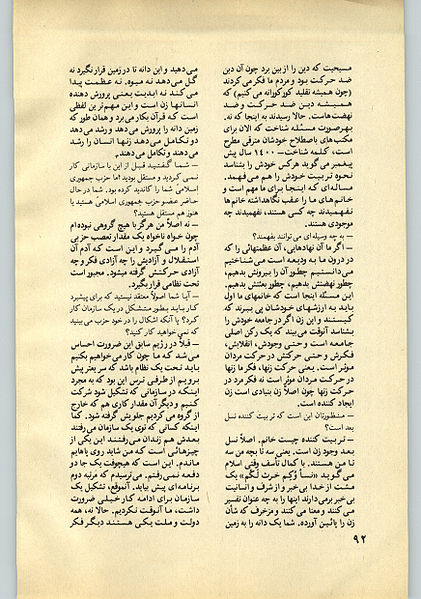 مسیحیت که دین را از بین برد چون آن دین
ضد حرکت بود و مردم ما فکر می‌کردند
(چون همیشه تقلید کورکورانه می‌کنیم) که
همیشه دین ضد حرکت و ضد
نهضت‌هاست. حالا رسیدند به اینجا که نه،
بهرصورت مسئله شناخت که الان برای
مکتب‌های باصطلاح خودشان مترقی مطرح
است، کلمه شناخت - ۱۴۰۰ سال پیش
پیغمبر می‌گوید هرکس خودش را بشناسد
نحوه تربیت خودش را هم می‌فهمد.
مسأله‌ای که اینجا برای ما مهم است و
خانم‌های ما را عقب نگاهداشته خانم‌ها
نفهمیدند چه کسی هستند، نفهمیدند چه
موجودی هستند.
— به چه وسیله‌ای می‌توانند بفهمند؟
— اگر ما آن نهادهایی، آن عظمتهائی را که
در درون ما به ودیعه است می‌شناختیم
می‌دانستیم چطور آن را بیرونش بدهیم،
چطور نهضتش بدهیم، چطور بعثتش بدهیم.
این مسئله اینجا است که خانمهای ما اول
باید به ارزشهای خودشان پی ببرند که
کیستند و این زن اگر در جامعه خودش را
بشناسد آنوقت می‌بیند که یک رکن اصلی
جامعه است و حتی وجودش، انقلابش،
فکرش و حتی حرکتش در حرکت مردان
موثر است. یعنی حرکت زنها، فکر ما زنها
در حرکت مردان موثر است نه فکر مرد در
حرکت زنها چون اصلاً زن بنیادی است زن
ایجاد کننده است.
— منظورتان این است که تربیت کننده نسل
بعد است؟
— تربیت کننده چیست خانم. اصلاً نسل
بعد وجود زن است. یعنی سه تا بچه من سه
تا من هستند. با کمال تأسف وقتی اسلام
می‌گوید «نساؤکم حرث لکم» یک
مشت از خدا بی‌خبر و از شرف و انسانیت
بی‌خبر برمی‌دارند اینها را به چه عنوان تفسیر
می‌کنند و معنا می‌کنند و مزخرف که شأن
زن را پائین آورده. شما یک دانه را به زمین
می‌دهید و این دانه تا در زمین قرار نگیرد نه
گل می‌دهد نه میوه. نه عظمت پیدا
می‌کند نه ابدیت یعنی پرورش دهنده
انسانها زن است و این مهم‌ترین لفظی
است که قرآن بکار می‌برد و همان طور که
زمین دانه را پرورش می‌دهد و رشد می‌دهد
در تکامل می‌دهد زنها انسان را رشد
می‌دهند و تکامل می‌دهند.
— شما گفتید قبل از این با سازمانی کار
نمی‌کردید و مستقل بودید اما حزب جمهوری
اسلامی شما را کاندید کرده بود. شما در حال
حاضر عضو حزب جمهوری اسلامی هستید یا
هنوز هم مستقل هستید؟
— نه اصلاً من هرگز با هیچ گروهی نبوده‌ام
چون خواه ناخواه یک مقدار تعصب حزبی
آدم را می‌گیرد و این است که آدم آن
استقلال و آزادیش را چه آزادی فکر و چه
آزادی حرکتش گرفته میشود. مجبور است
تحت نظامی قرار بگیرد.
— آیا شما اصولاً معتقد نیستید که برای پیشبرد
کار باید بطور متشکل در یک سازمان کار
کرد؟ یا آنکه اشکال را در خود حزب می‌بینید
که نمی‌خواهید کار کنید؟
— قبلاً در رژیم سابق این ضرورت احساس
می‌شد که ما چون کار می‌خواهیم بکنیم
باید تحت یک نظام باشد که سریعتر پیش
برویم از طرفی ترس این بود که به مجرد
اینکه در سازمانی که تشکیل شود شرکت
کنیم و دیگر آن مقدار کاری هم که خارج
از گروه می‌کردیم جلویش گرفته شود. کما
اینکه کسانی که توی یک سازمان می‌رفتند
بعدش هم زندان می‌رفتند این یکی از
چیزهائی است که من شاید روی پاهایم
ماندم. این است که هیچوقت یک جا دو
دفعه نمی‌رفتم. می‌ترسیدم که مرتبه دوم
برنامه‌ای پیش بیاید. آنموقع، تشکیل یک
سازمان برای ادامه کار خیلی ضرورت
داشت، ما آنوقت نکردیم. حالا نه، همه
دولت و ملت یکی هستند دیگر فکر
۹۲